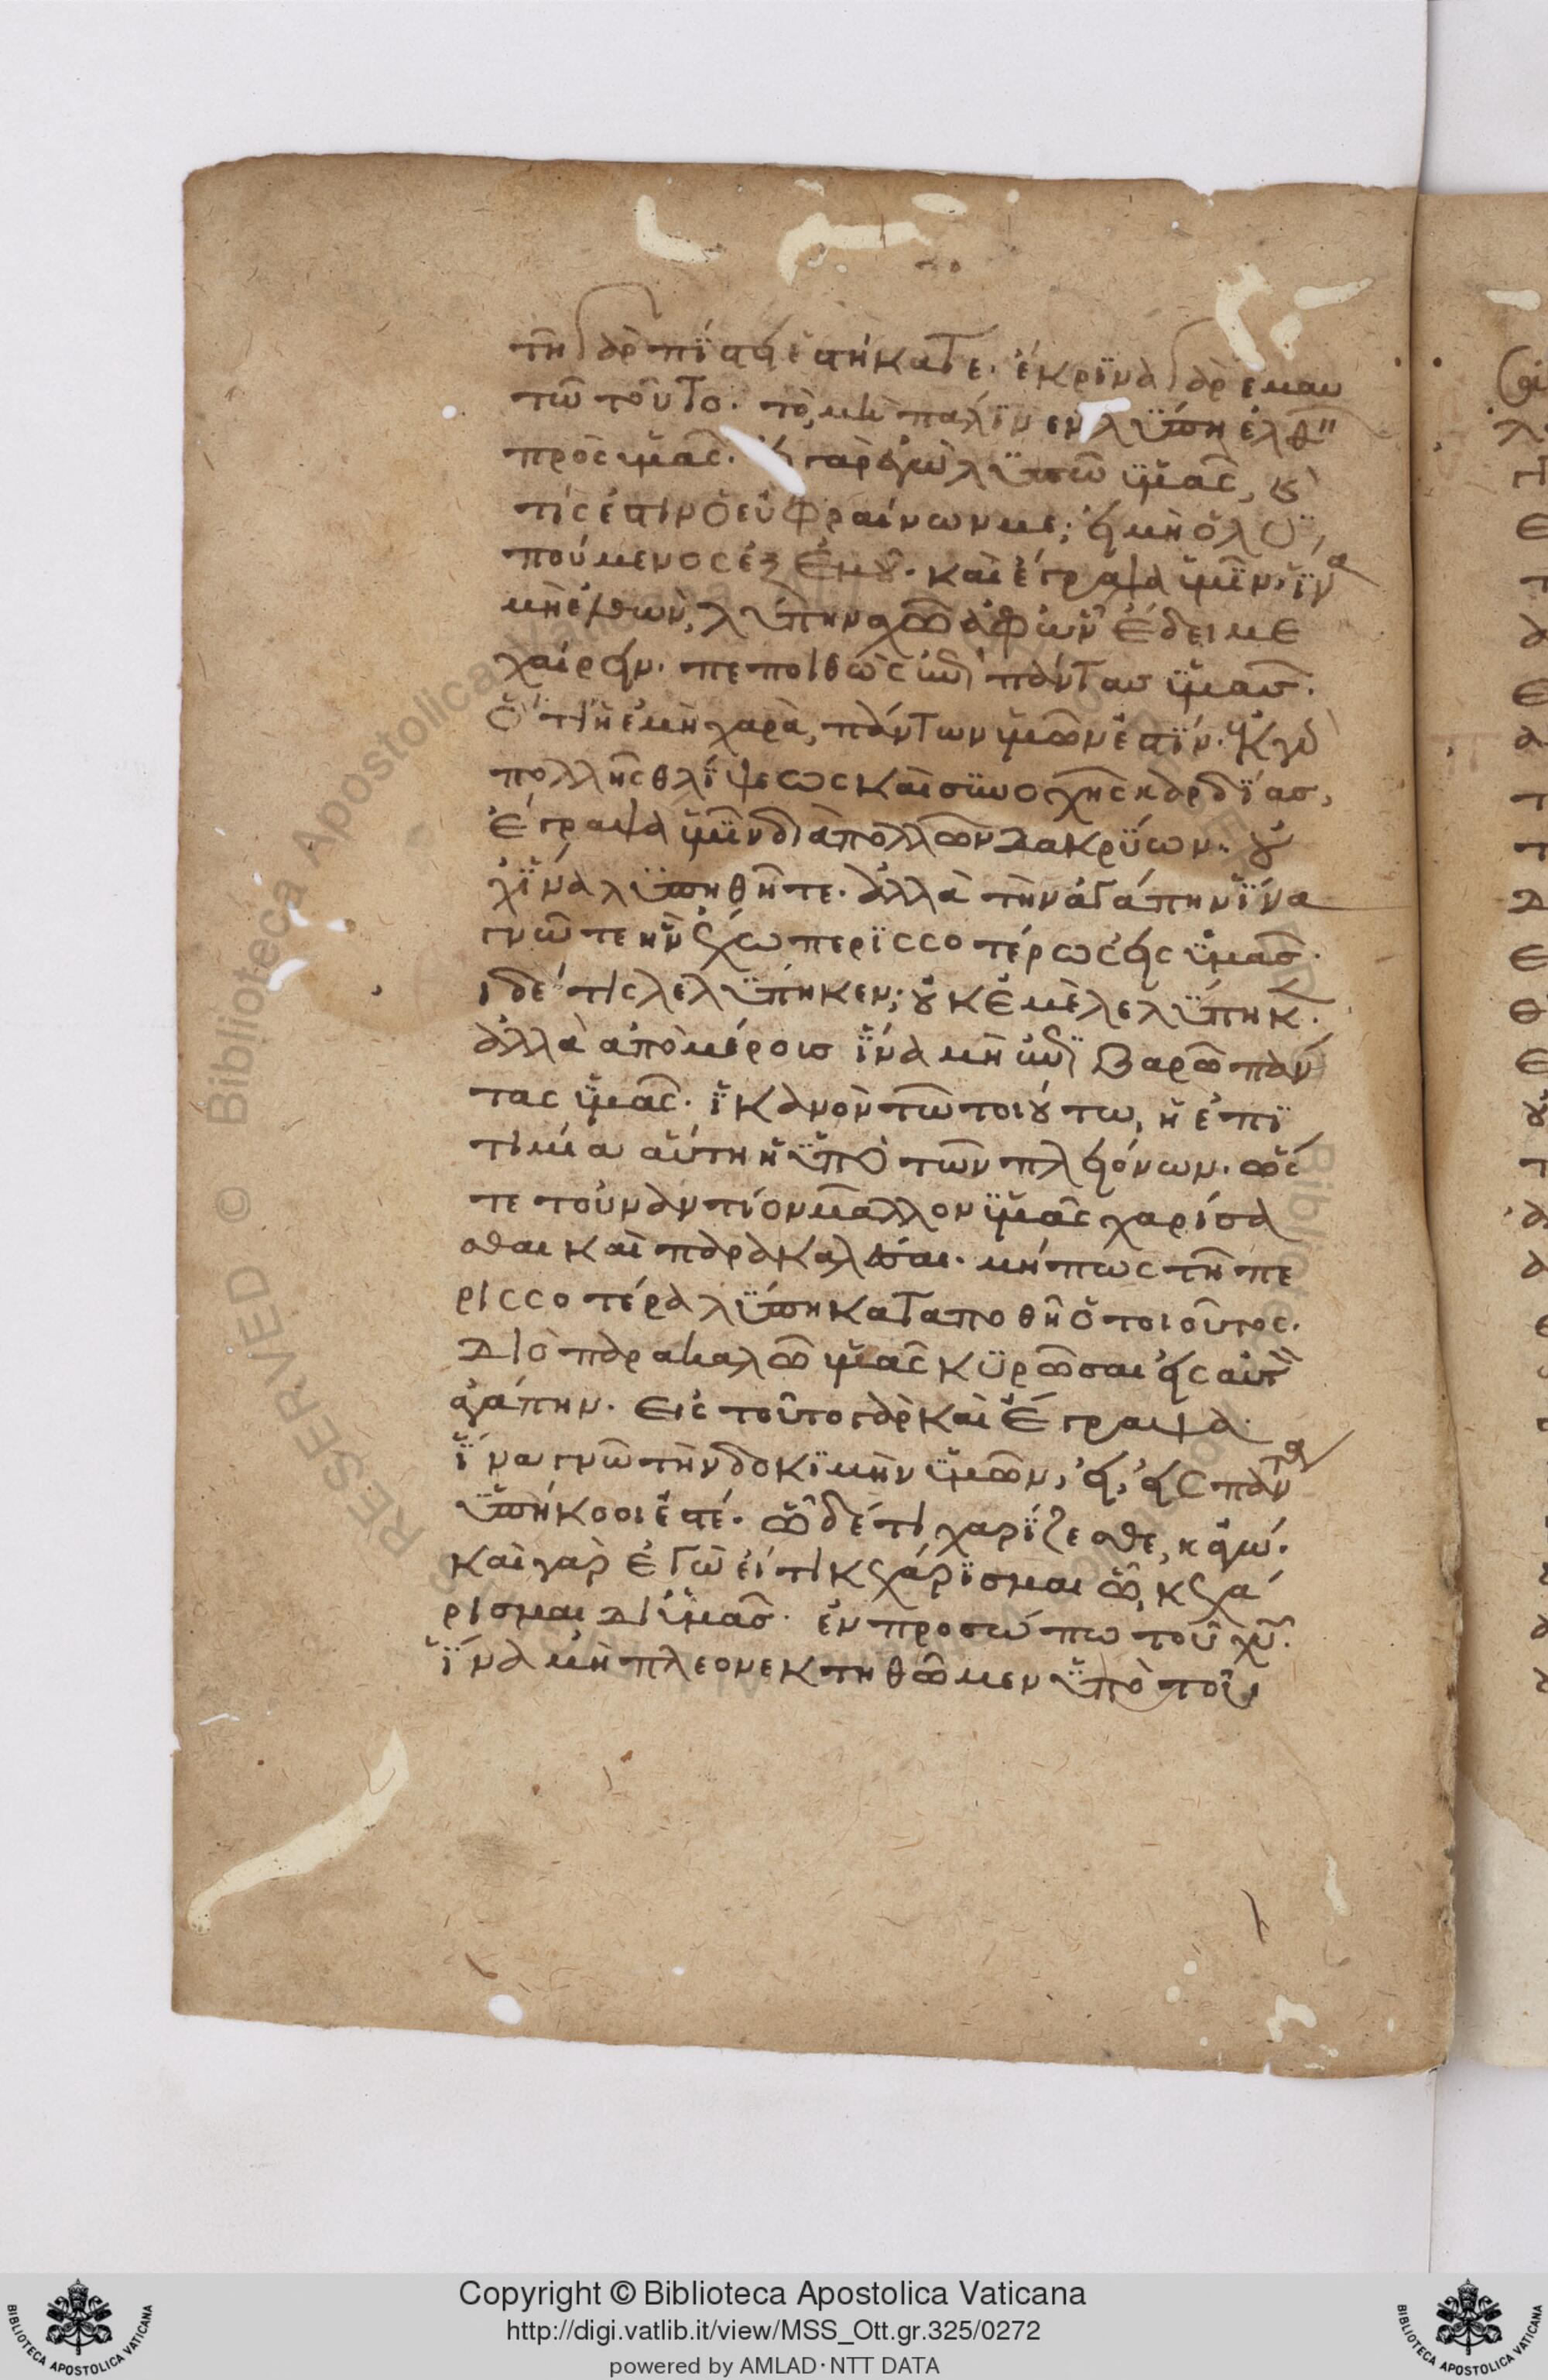 τῆ γὰρ πίστει ἑστήκατε. ἔκρινα γὰρ εμαυ
τῶ τοῦτο. τὸ, μὴ πάλιν εν λύπη ἐλθεῖν
πρὸς ὑμᾶς. εἰ γὰρ ἐγὼ λυπῶ ὑμᾶς, καὶ
τίς ἐστιν ὁ εὐφραίνων με; εἰ μὴ ὁ λυ
πούμενος ἐξ ἐμοῦ. καὶ ἔγραψα ὑμῖν. ἵνα
μὴ ἐλθὼν, λύπην σχῶ ἀφ ὧν ἔδει με
χαίρειν. πεποιθὼς ἐπὶ πάντασ ὑμασ.
ὅτι ἡ ἐμὴ χαρὰ, πάντων ὑμῶν ἐστϊν. ἐκ γὰρ
πολλῆς θλίψεως καὶ συνοχῆς καρδίασ,
ἔγραψα ὑμῖν διὰ πολλῶν δακρύων. οὐ
χ ἵνα λυπηθῆτε. ἀλλὰ τὴν ἀγάπην ἵνα
γνῶτε ἣν ἔχω περισσοτέρως εἰς ὑμᾶσ.
ι δέ τίς λελύπηκεν; οὐκ ἐμὲ λελύπηκεν.
ἀλλὰ ἀπὸ μέροισ ἵνα μὴ ἐπϊ βαρῶ πάν
τας ὑμᾶς. ἱκανὸν τῶ τοιούτω, ἡ ἐπι
τιμία αὕτη ἡ ὑπὸ τῶν πλειόνων. ὥσ
τε τοὐναντίον μᾶλλον ὑμᾶς χαρίσα
σθαι καὶ παρακαλέσαι. μήπως τῆ πε
ρισσοτέρα λύπη καταποθῆ ὁ τοιοῦτος.
Διὸ παρακαλῶ ὑμᾶς κυρῶσαι εἰς αὐτὸν
ἀγάπην. εις τοῦτο γὰρ καὶ ἔγραψα.
ἵνα γνῶ τὴν δοκιμὴν ὑμῶν, εἰ, εἰς πάντα
ὑπήκοοι ἐστέ. ᾧ δέ τι χαρίζεσθε, κἀγώ.
καὶ γὰρ ἐγὼ εἴ τι κεχάρισμαι ᾧ, κεχά
ρισμαι δι ὑμᾶσ. ἐν προσώπω τοῦ χυ.
ἵνα μὴ πλεονεκτηθῶμεν ὑπὸ τοῦ
Copyright © Biblioteca Apostolica Vaticana
http://digi.vatlib.it/view/MSS_Ott.gr.325/0272
powered by AMLAD·NTT DATA